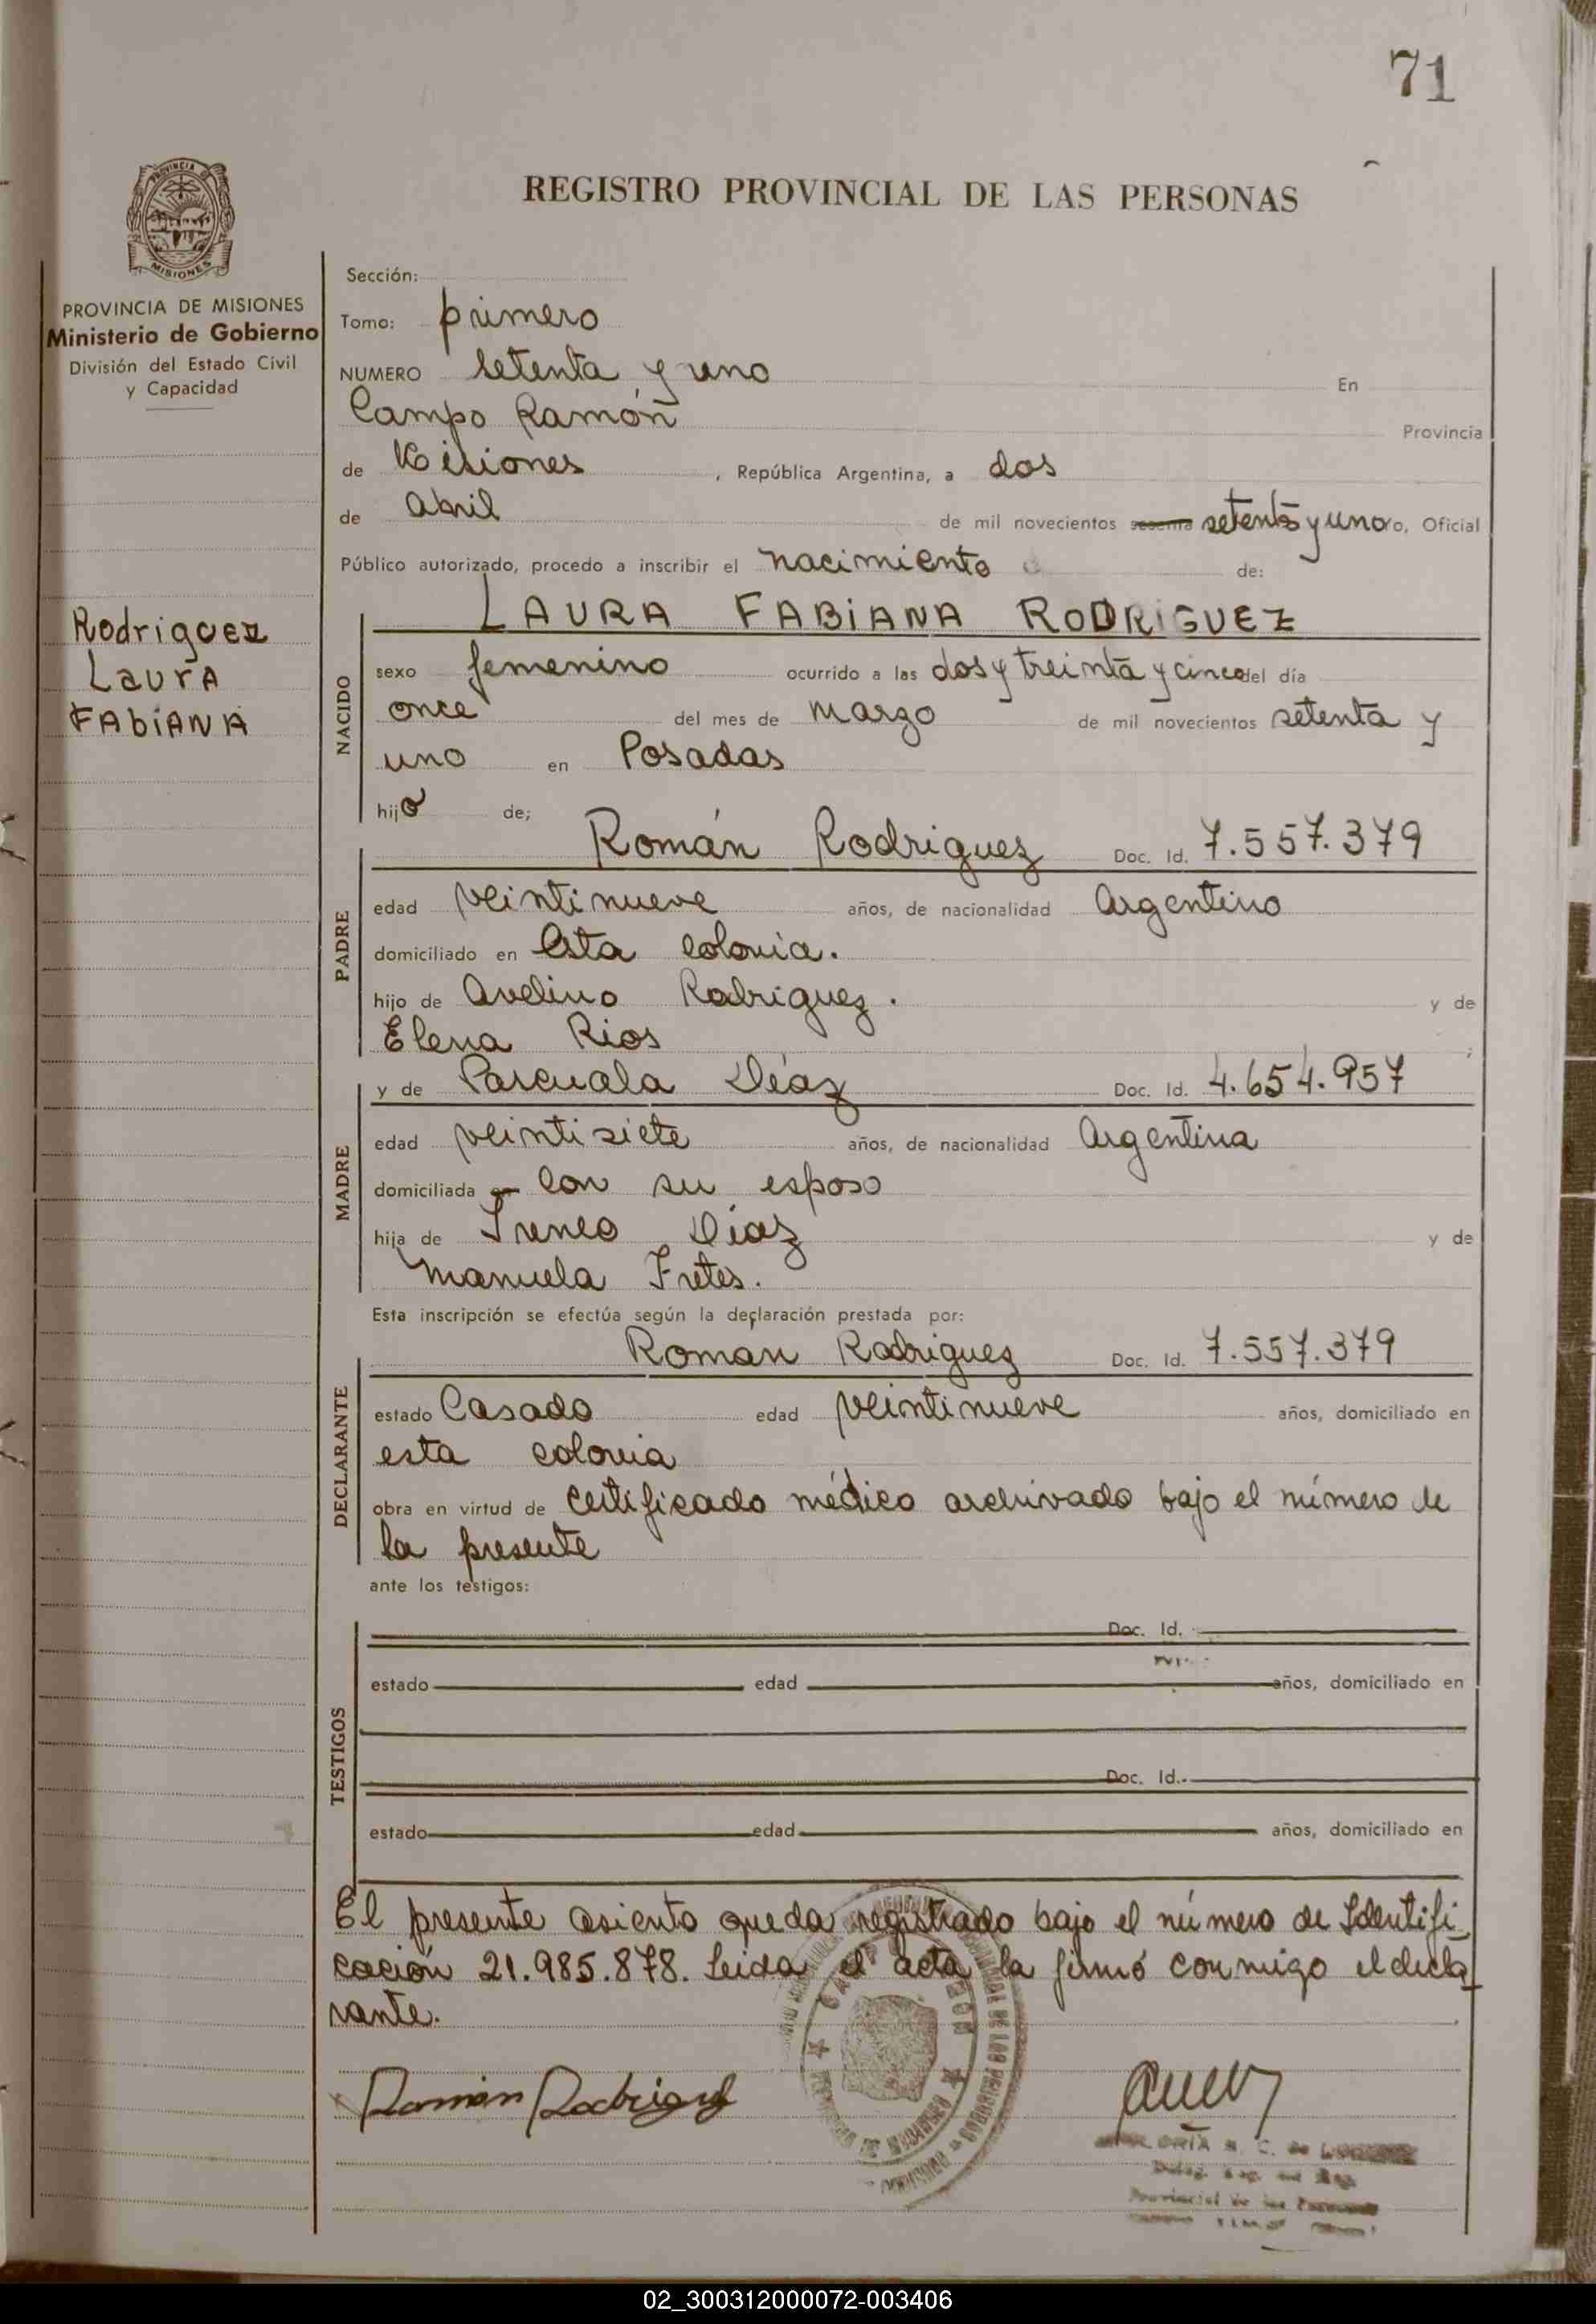 71
REGISTRO PROVINCIAL DE LAS PERSONAS
PROVINCIA DE
MISIONES
PROVINCIA DE MISIONES
Ministerio de Gobierno
División del Estado Civil
y Capacidad
Rodriguez
Laura
FAbiANA
Sección:
Tomo: primero
NUMERO setenta y uno En
Campo Ramón Provincia
de Misiones, República Argentina, a dos
de Abril de mil novecientos sesenta setenta y uno yo, Oficial
Público autorizado, procedo a inscribir el nacimiento de:
LAURA FABiANA RODRiGUEZ
NACIDO
sexo femenino ocurrido a las dos y treinta y cinco del día
once del mes de marzo de mil novecientos setenta y
uno en Posadas
hija de;
Román Rodriguez Doc. Id. 7.557.379
PADRE
edad veintinueve años, de nacionalidad Argentino
domiciliado en Esta colonia.
hijo de Avelino Rodriguez. y de
Elena Rios ;
y de Pascuala Díaz Doc. Id. 4.654.957
MADRE
edad veintisiete años, de nacionalidad Argentina
domiciliada en con su esposo
hija de Ireneo Díaz y de
Manuela Fretes.
Esta inscripción se efectúa según la declaración prestada por:
Roman Rodriguez Doc. Id. 7.557.379
DECLARANTE
estado Casado edad veintinueve años, domiciliado en
esta colonia
obra en virtud de certificado médico archivado bajo el número de
la presente
ante los testigos:
Doc. Id.
TESTIGOS
estado edad años, domiciliado en
Doc. Id.
estado edad años, domiciliado en
El presente asiento queda registrado bajo el número de Identifi
cación 21.985.878. Leida el acta la firmó conmigo el decla
rante.
CAMPO RAMON
Román Rodriguez
Provincial de las Personas
02_300312000072-003406